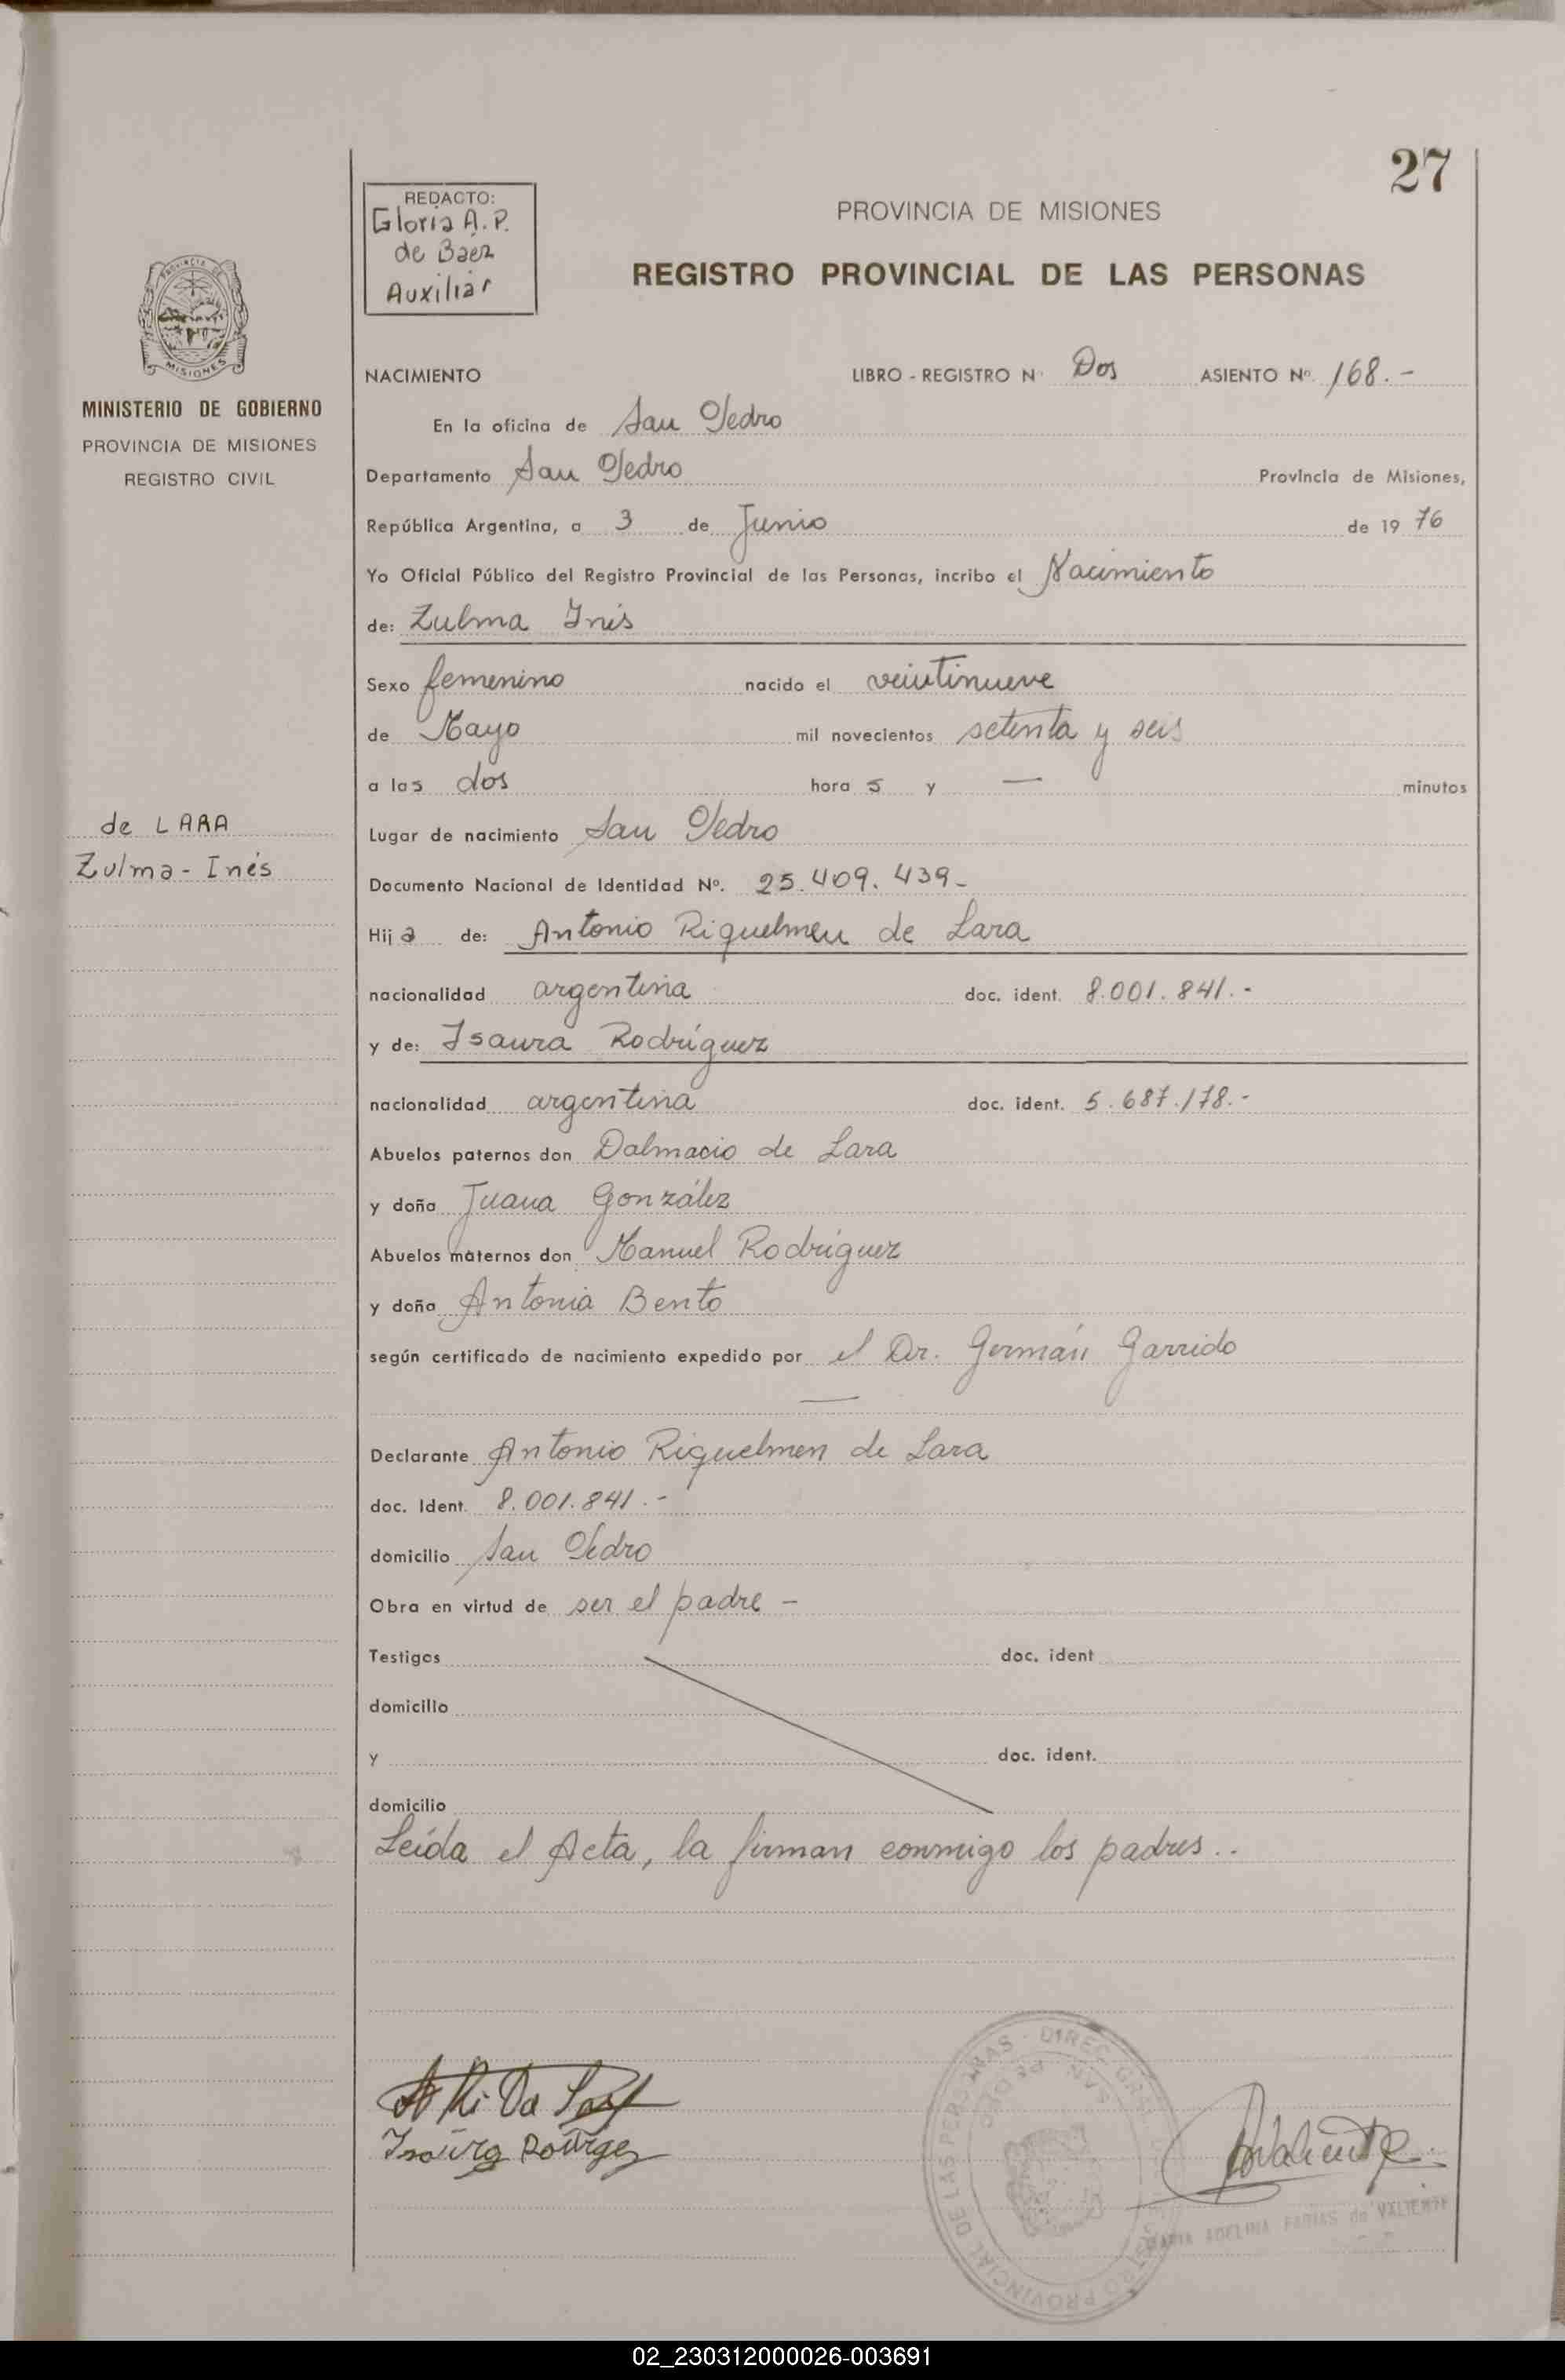 27
REDACTO:
Gloria A. P.
de Baez
Auxiliar
PROVINCIA DE MISIONES
REGISTRO PROVINCIAL DE LAS PERSONAS
PROVINCIA DE
MISIONES
MINISTERIO DE GOBIERNO
PROVINCIA DE MISIONES
REGISTRO CIVIL
NACIMIENTO LIBRO - REGISTRO N° Dos ASIENTO Nº. 168.-
En la oficina de San Pedro
Departamento San Pedro Provincia de Misiones,
República Argentina, a 3 de Junio de 19 76
Yo Oficial Público del Registro Provincial de las Personas, incribo el Nacimiento
de: Zulma Inés
Sexo femenino nacido el veintinueve
de Mayo mil novecientos setenta y seis
a las dos hora s y — minutos
de LARA
Zulma - Inés
Lugar de nacimiento San Pedro
Documento Nacional de Identidad Nº. 25.409.439-
Hij a de: Antonio Riquelmen de Lara
nacionalidad argentina doc. ident. 8.001.841.-
y de: Isaura Rodríguez
nacionalidad argentina doc. ident. 5.687.178.-
Abuelos paternos don Dalmacio de Lara
y doña Juana González
Abuelos maternos don Manuel Rodríguez
y doña Antonia Bento
según certificado de nacimiento expedido por el Dr. Germán Garrido
—
Declarante Antonio Riquelmen de Lara
doc. Ident. 8.001.841.-
domicilio San Pedro
Obra en virtud de ser el padre -
Testigos doc. ident
domicilio
y doc. ident.
domicilio
Leída el Acta, la firman conmigo los padres..
MARIA ADELINA FARIAS de VALIENTE
02_230312000026-003691